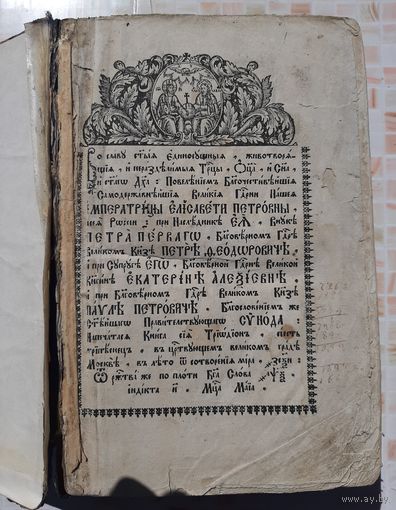 Во славу ст҃ыѧ единосꙋщныѧ, животворѧ-
щїѧ, и нераздѣлимыѧ Трⷪ҇цы, Ѻц҃а, и Сн҃а
и ст҃агѡ Дх҃а: Повелѣнїемъ Благочестивѣйшїѧ
Самодержавнѣйшїѧ Великїѧ Гдⷭ҇рни Нашеѧ
ИМПЕРАТРИЦЫ ЕЛІСАВЕТИ ПЕТРОВНЫ,
всеѧ Рѡссїи: при Наслѣдникѣ ЕѦ, Внꙋкѣ
ПЕТРА ПЕРВАГѠ, Благовѣрномъ Гдⷭ҇рѣ
Великомъ Кнѧзѣ ПЕТРѢ ѲЕОДѠРОВИЧѢ,
и при Сꙋпрꙋгѣ ЕГѠ, Благовѣрной Гдⷭ҇рнѣ Великой
Кнѧгинѣ ЕКАТЕРИНѢ АЛЕѮІЕВНѢ,
и при Благовѣрномъ Гдⷭ҇рѣ Великомъ Кнѧзѣ
ПАѴЛѢ ПЕТРОВИЧѢ, Благословенїемъ же
Ст҃ѣйшагѡ Правителствꙋющагѡ СѴНОДА:
Напечатасѧ Книга сїѧ Трїѡдїонъ, сїесть
трипѣснецъ, въ црⷭ҇твꙋющемъ великомъ градѣ
Москвѣ, въ лѣто ѿ сотворенїѧ мїра,
Ѿ рждⷭ҇тва же по плоти Бг҃а Слова
індїкта и҃, Мцⷭ҇а Маїа
www.ay.by